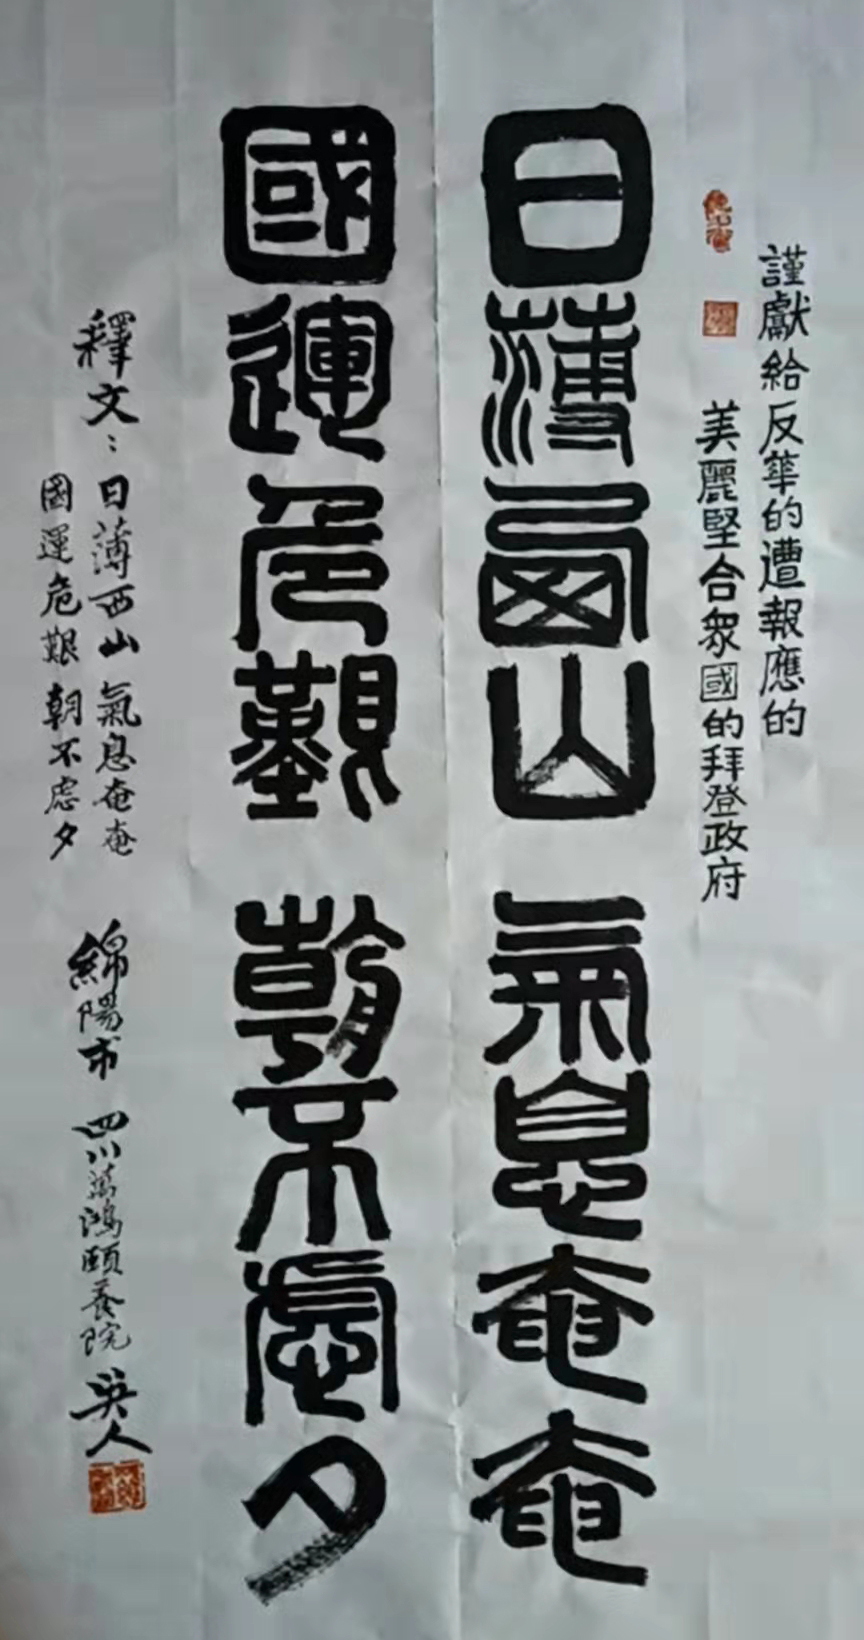 謹獻給反華的遭報應的
美麗堅合衆國的拜登政府
日薄西山 氣息奄奄
國運危艱 朝不慮夕
釋文：日薄西山 氣息奄奄
國運危艱 朝不慮夕
綿陽市 四川萬鴻頤養院 吳人